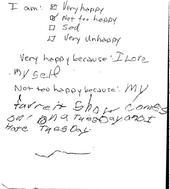 I am: ☒ Very happy
☑ Not too happy
☐ Sad
☐ Very Unhappy
Very happy because: I Love
My self
Not too happy because: My
favreit Show comes
on on a TuesDay and I
Hate TuesDay